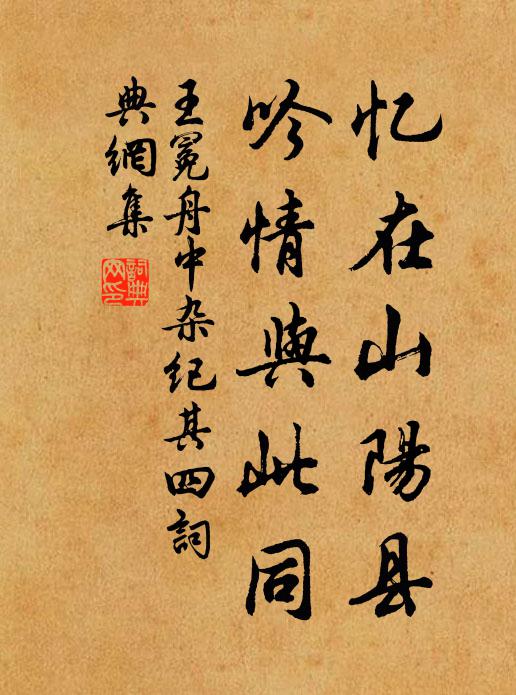 忆在山陽县
吟情與此同
王冕舟中杂纪其四詞
典網集
詞典
网印